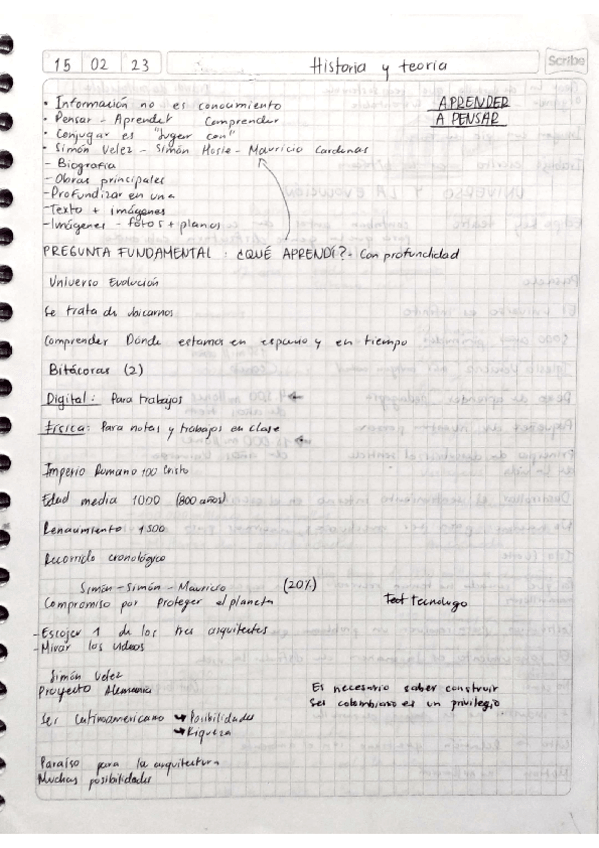 15 02 23 Historia y teoría Scribe
• Información no es conocimiento
APRENDER A PENSAR
• Pensar - Aprender Comprender
• Conjugar es "jugar con"
• Simón Velez - Simón Hosie - Mauricio Cardenas
- Biografía
- Obras principales
- Profundizar en una
- Texto + imágenes
- Imágenes - fotos + planos
PREGUNTA FUNDAMENTAL : ¿QUÉ APRENDÍ? - Con profundidad
Universo Evolución
Se trata de ubicarnos
Comprender Donde estamos en espacio y en tiempo
Bitácoras (2)
Digital: Para trabajos ←
Física: Para notas y trabajos en clase ←
Imperio Romano 100 Cristo
Edad media 1000 (800 años)
Renacimiento 1500
Recorrido cronológico
Simón - Simón - Mauricio (20%)
Compromiso por Proteger el planeta
- Escojer 1 de los tres arquitectos
- Mirar los videos
Simón Velez
Proyecto Alemania
Es necesario saber construir
Ser colombiano es un privilegio
Ser Latinoamericano → Posibilidades
→ Riqueza
Paraíso para la arquitectura
Muchas posibilidades